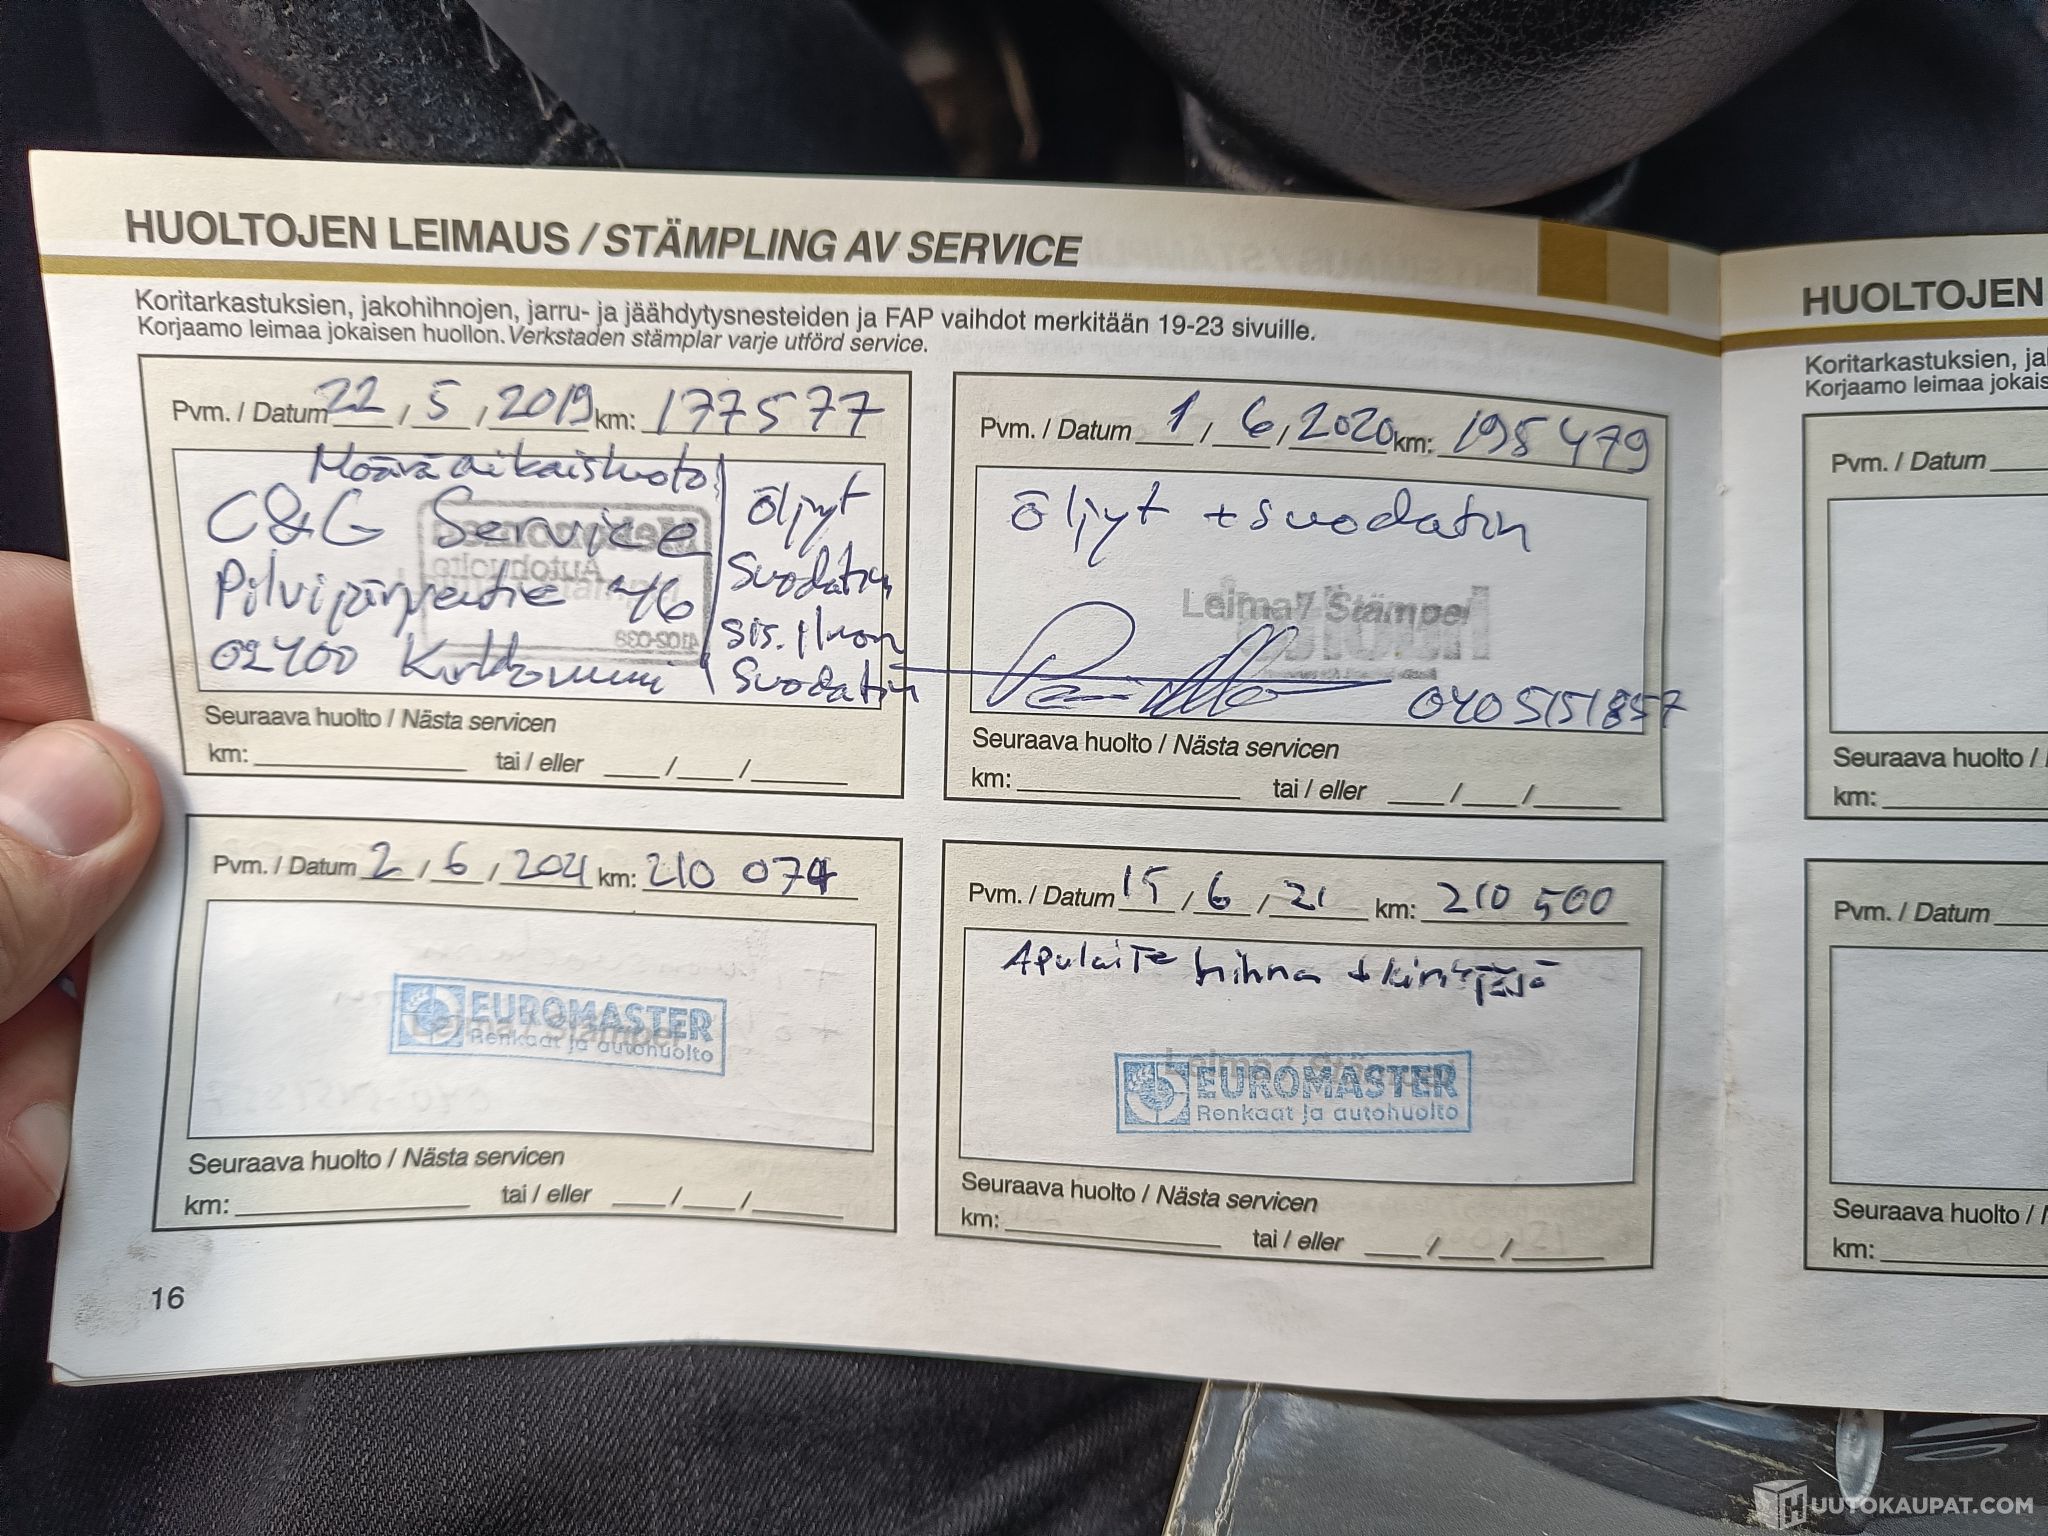 HUOLTOJEN LEIMAUS / STÄMPLING AV SERVICE
Koritarkastuksien, jakohihnojen, jarru- ja jäähdytysnesteiden ja FAP vaihdot merkitään 19-23 sivuille.
Korjaamo leimaa jokaisen huollon. Verkstaden stämplar varje utförd service.
Pvm. / Datum 22 / 5 / 2019 km: 177577
Määräaikaishuolto
C&G Service
Pilvijärventie 46
02400 Kirkkonummi
Öljyt
Suodatin
sis. ilman
Suodatin
Seuraava huolto / Nästa servicen
km: tai / eller / /
Pvm. / Datum 1 / 6 / 2020 km: 195 479
Öljyt + suodatin
Leima / Stämpel
0405151857
Seuraava huolto / Nästa servicen
km: tai / eller / /
Pvm. / Datum 2 / 6 / 2021 km: 210 074
EUROMASTER
Renkaat ja autohuolto
Leima / Stämpel
Seuraava huolto / Nästa servicen
km: tai / eller / /
Pvm. / Datum 15 / 6 / 21 km: 210 500
Apulaite hihna + kiristäjä
Leima / Stämpel
EUROMASTER
Renkaat ja autohuolto
Seuraava huolto / Nästa servicen
km: tai / eller / /
16
HUOLTOJEN
Koritarkastuksien, ja
Korjaamo leimaa jokais
Pvm. / Datum
Seuraava huolto /
km:
Pvm. / Datum
Seuraava huolto /
km:
HUUTOKAUPAT.COM